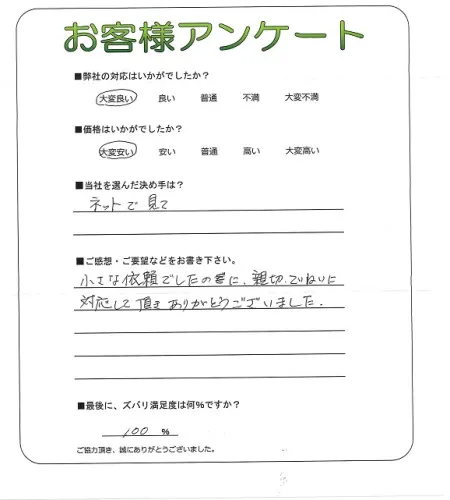 お客様アンケート
■弊社の対応はいかがでしたか？
大変良い 良い 普通 不満 大変不満
■価格はいかがでしたか？
大変安い 安い 普通 高い 大変高い
■当社を選んだ決め手は？
ネットで見て
■ご感想・ご要望などをお書き下さい。
小さな依頼でしたのに、親切、ていねいに
対応して頂きありがとうございました.
■最後に、ズバリ満足度は何％ですか？
100 %
ご協力頂き、誠にありがとうございました。